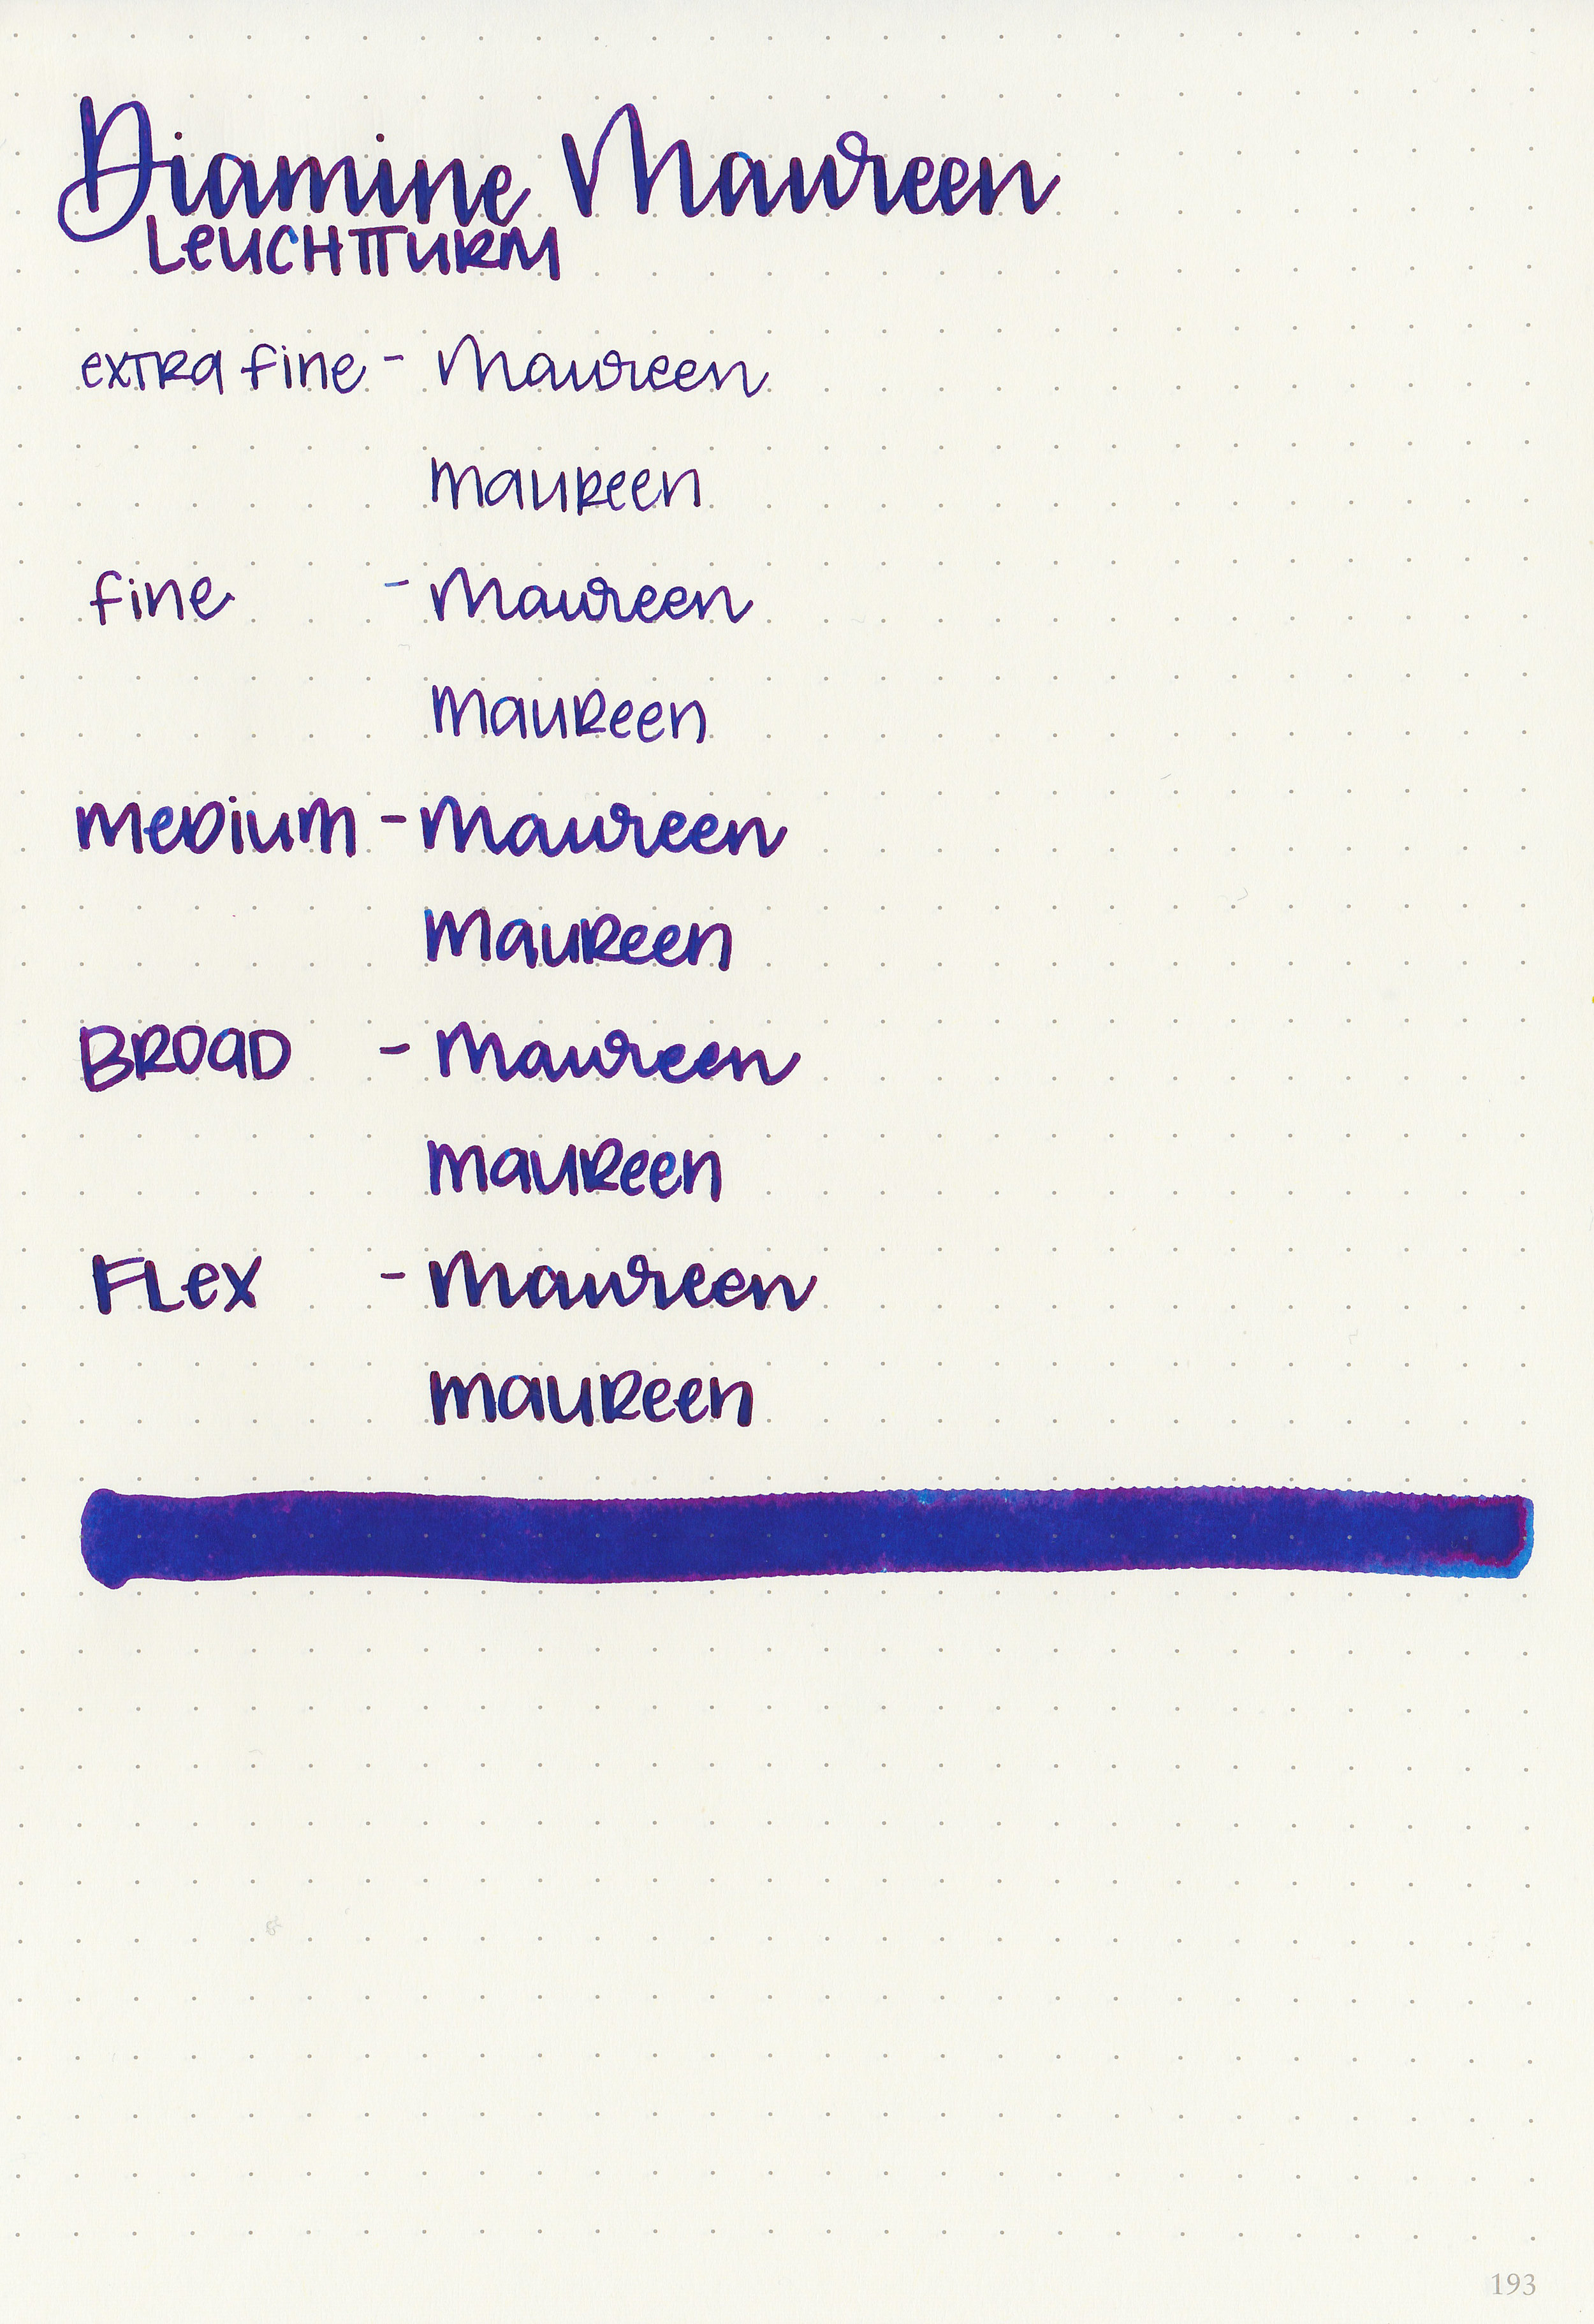 Diamine Maureen
LEUCHTTURM
extra fine - Maureen
maureen
fine - Maureen
maureen
medium - Maureen
maureen
BROAD - Maureen
maureen
FLEX - Maureen
maureen
193